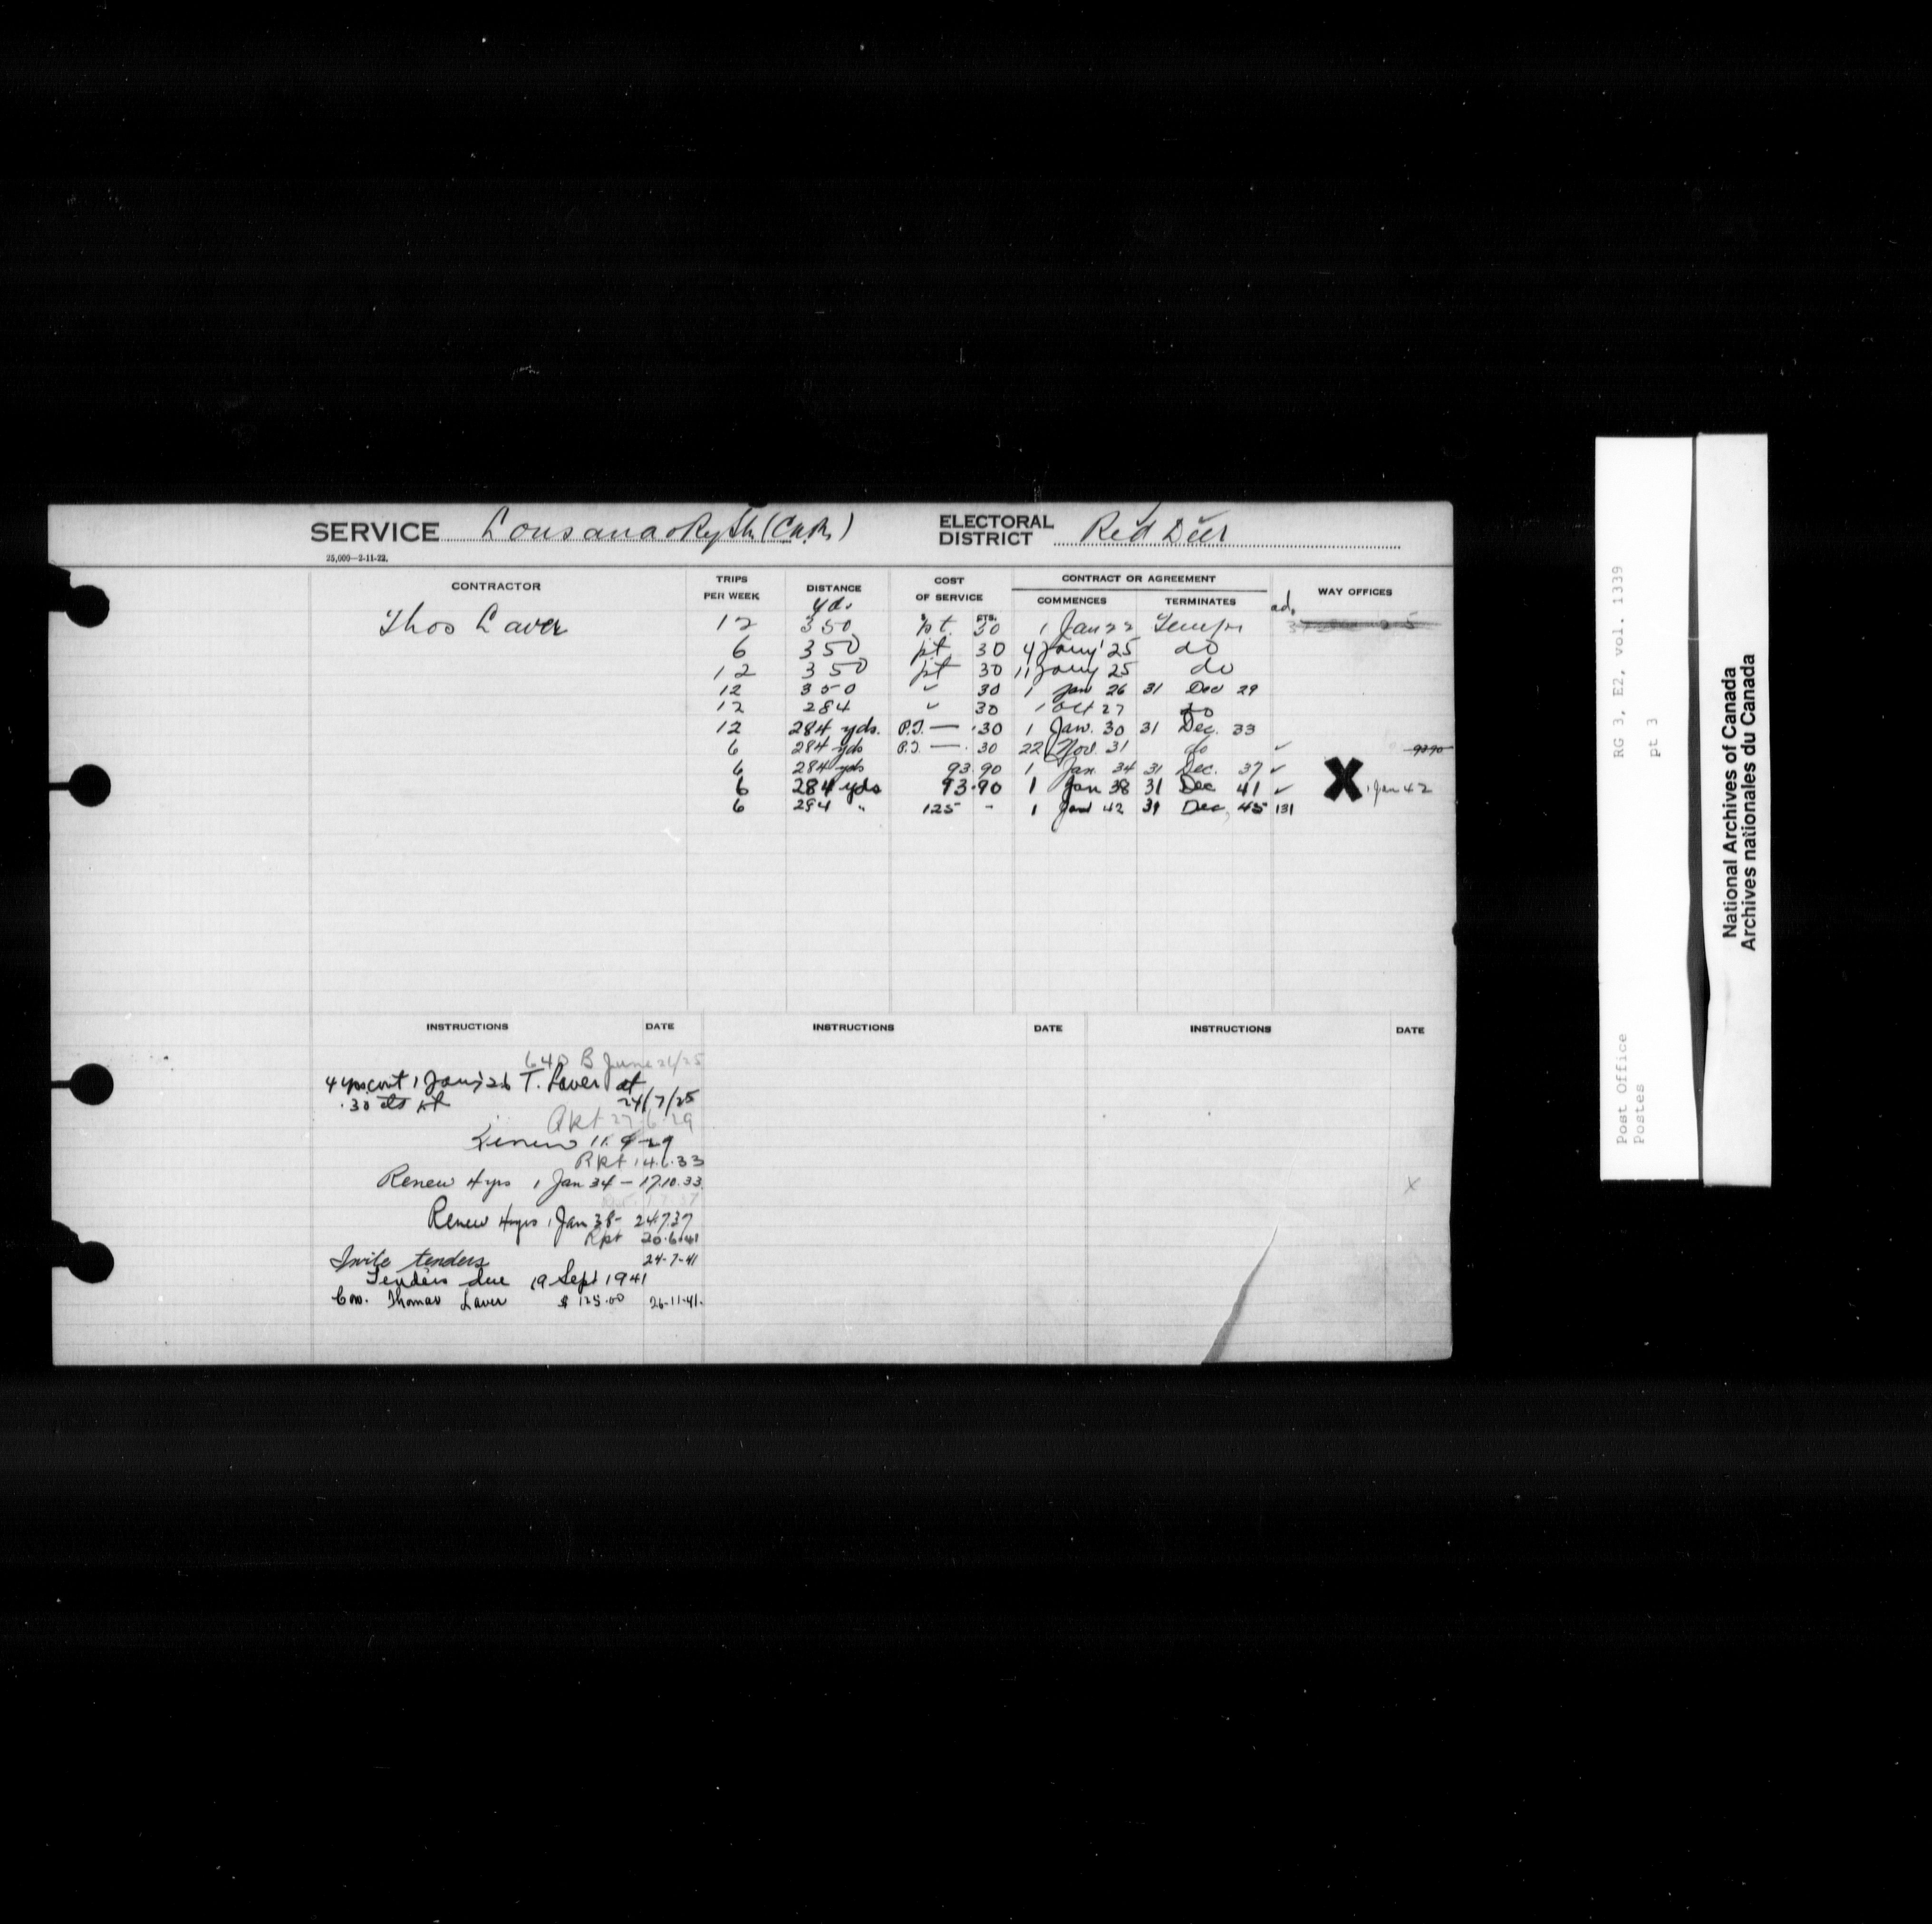 SERVICE Lousana & Ry Stn (C.N.R.) ELECTORAL DISTRICT Red Deer
25,000—2-11-22.
CONTRACTOR TRIPS PER WEEK DISTANCE COST OF SERVICE CONTRACT OR AGREEMENT COMMENCES TERMINATES WAY OFFICES
yds. $ CTS. ad.
Thos Laver 12 350 pt. 30 1 Jan 22 Tempy
6 350 pt 30 4 Jany '25 do
12 350 pt 30 11 Jany 25 do
12 350 " 30 1 Jan 26 31 Dec 29
12 284 " 30 1 Oct 27 do
12 284 yds. P.T. — .30 1 Jan. 30 31 Dec. 33
6 284 yds P.T. — .30 22 Nov. 31 do ✓ 93 90
6 284 yds 93.90 1 Jan. 34 31 Dec. 37 ✓
6 284 yds 93.90 1 Jan 38 31 Dec 41 ✓ X 1 Jan 42
6 284 " 125 - 1 Jan 42 31 Dec, 45 131
INSTRUCTIONS DATE INSTRUCTIONS DATE INSTRUCTIONS DATE
640 B June 26/25
4 yrs cont 1 Jany '26 T. Laver at
.30 cts pt 24/7/25
Rpt 27.6.29
Renew 11.9-29
Rpt 14.6.33
Renew 4 yrs 1 Jan 34 - 17.10.33
X
Renew 4 yrs 1 Jan 38 - 24.7.37
Rpt 20.6.41
Invite tenders 24-7-41
Tenders due 19 Sept 1941
Con. Thomas Laver $ 125.00 26-11-41.
RG 3, E2, vol. 1339
pt 3
Post Office
Postes
National Archives of Canada
Archives nationales du Canada